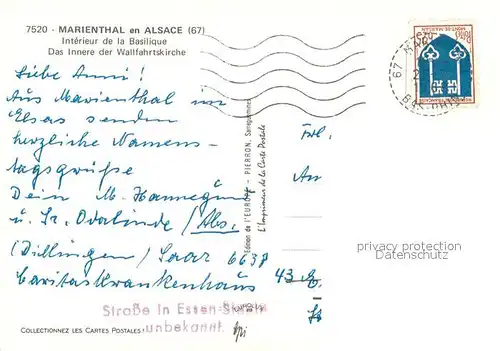 7520 - MARIENTHAL en ALSACE (67)
Intérieur de la Basilique
Das Innere der Wallfahrtskirche
Liebe Anni!
Aus Marienthal im
Elsass senden
herzliche Namens-
tagsgrüße
Dein M. Hannegund
u. Sr. Odalinde / Abs.
(Dillingen / Saar 6638
Caritaskrankenhaus
Edition de l'EUROPE - PIERRON, Sarreguemines
L'Imprimeur de la Carte Postale
Frl.
An
43 E
privacy protection
Datenschutz
Straße in Essen
unbekannt.
COLLECTIONNEZ LES CARTES POSTALES!
67
MONT-DE-MARSAN